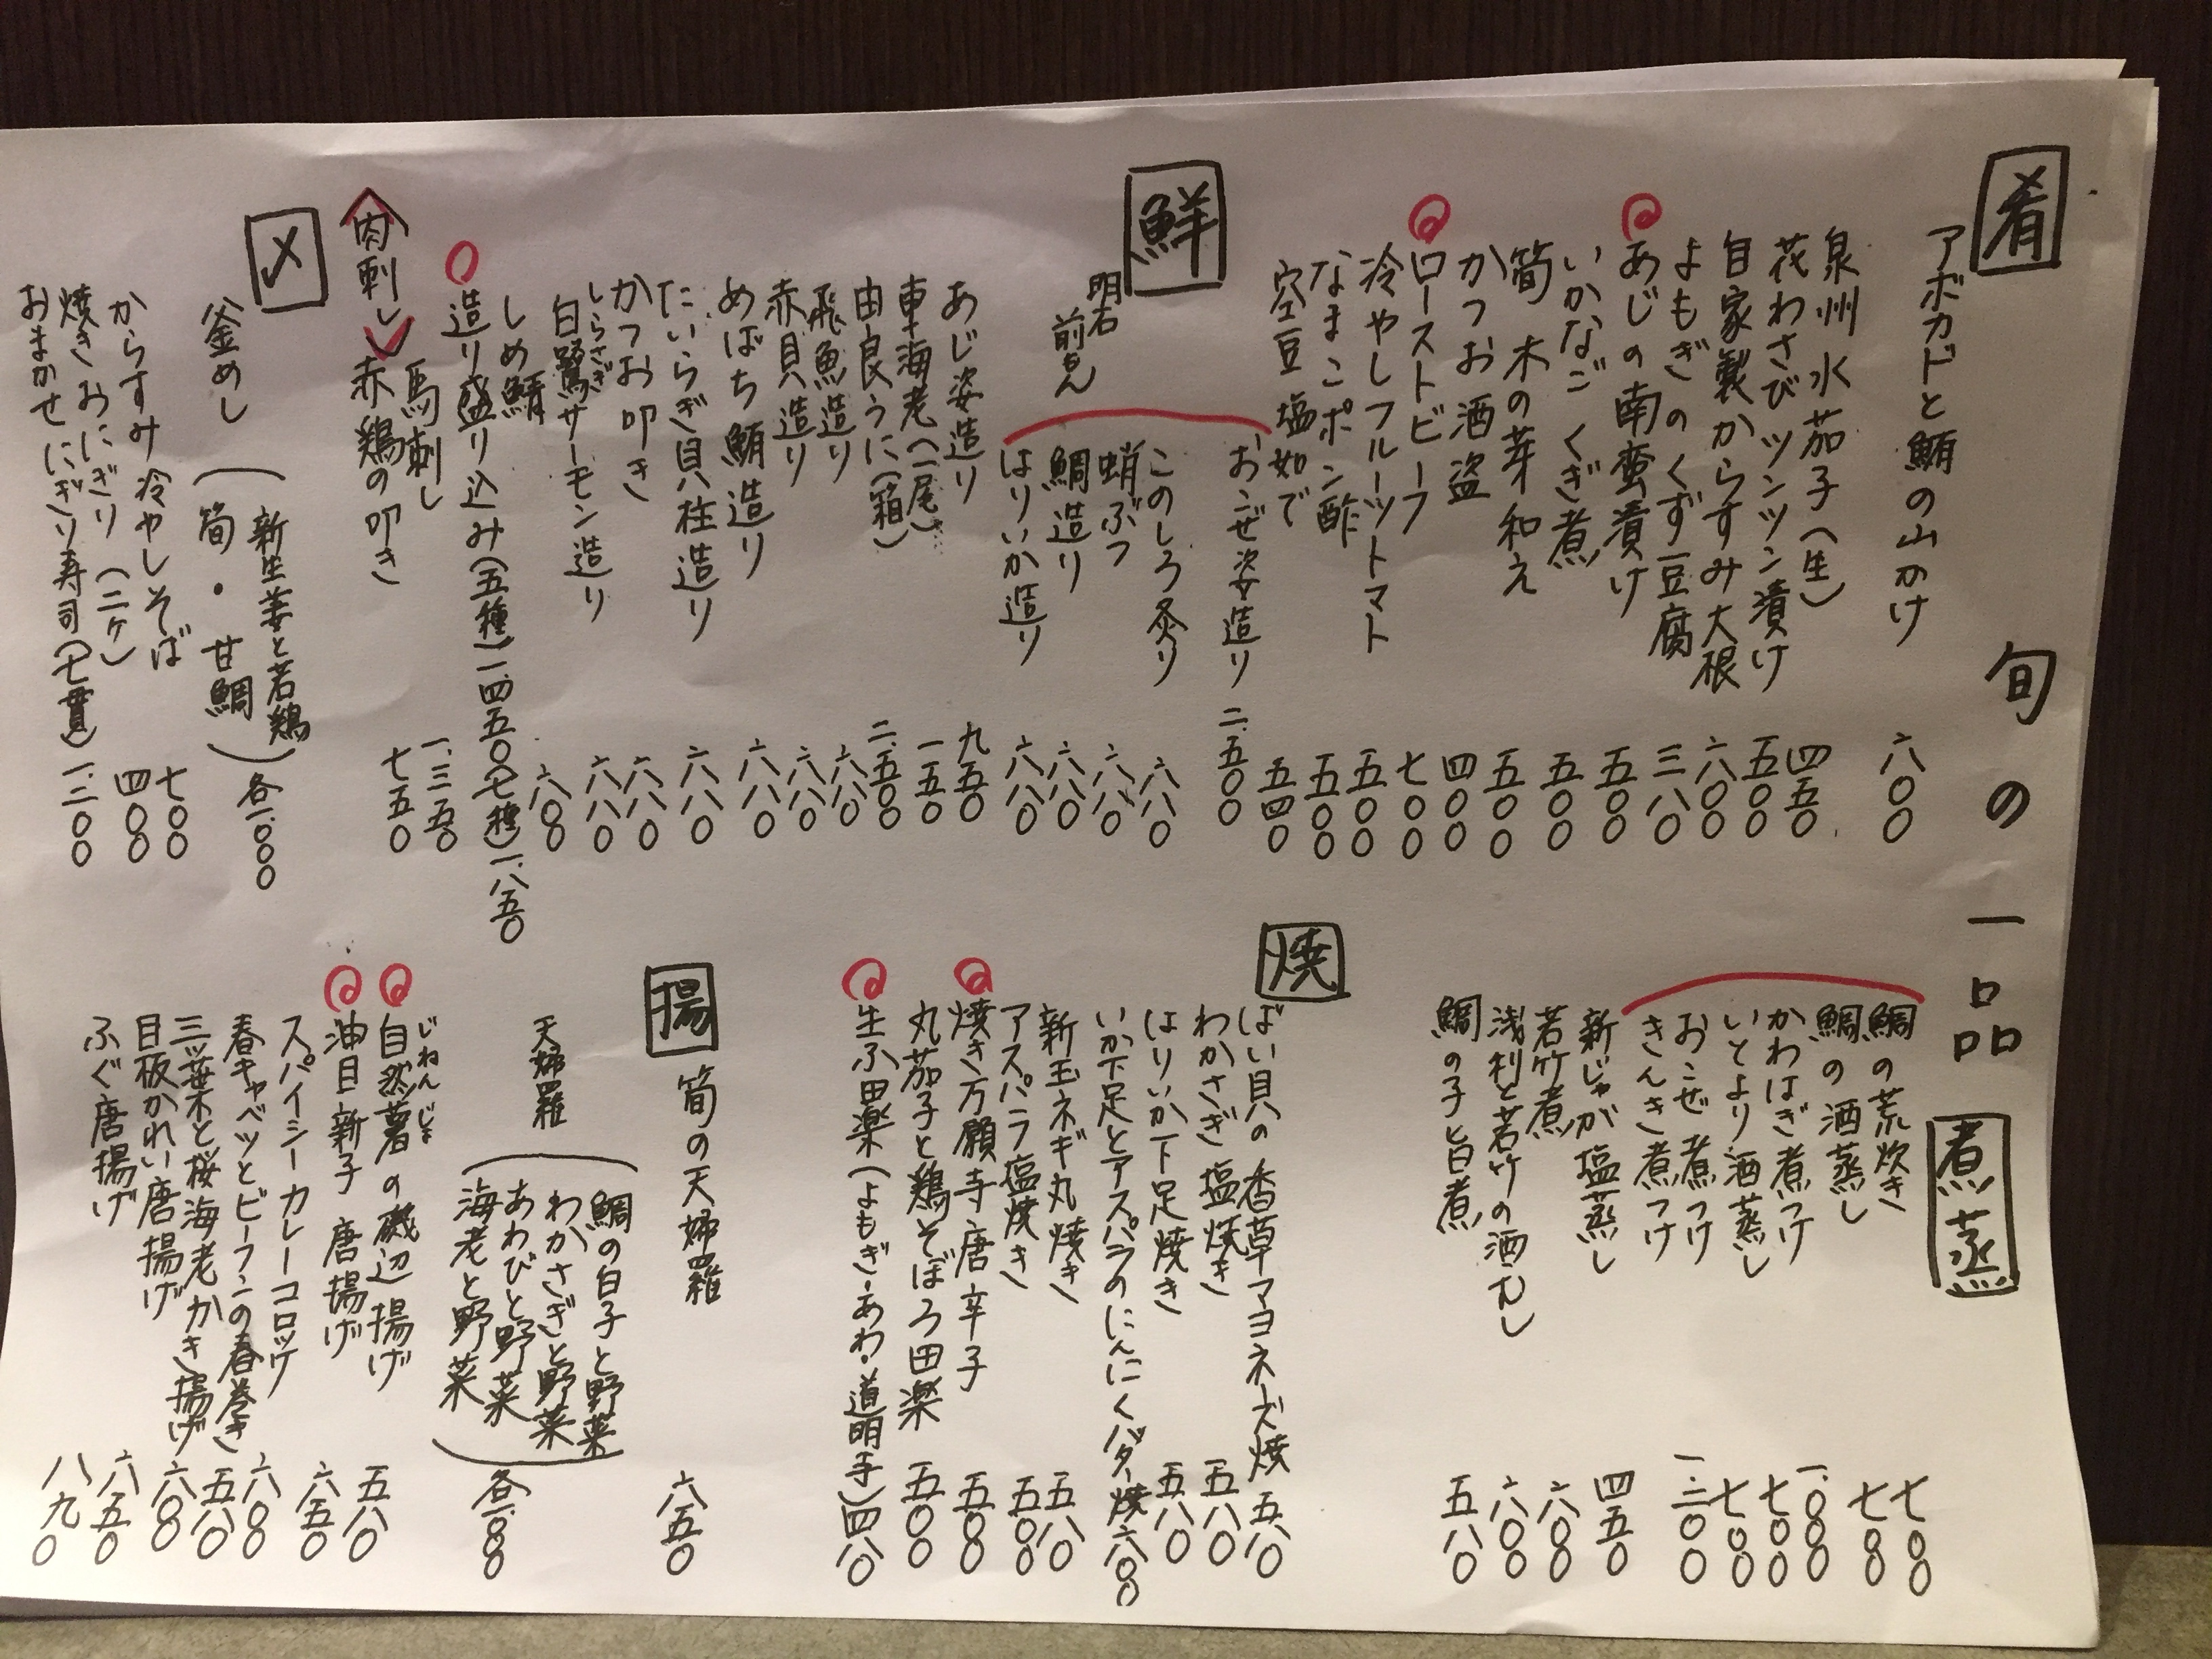 旬の一品
肴
アボカドと鮪の山かけ 六〇〇
泉州水茄子(生) 四五〇
花わさびツンツン漬け 五〇〇
自家製からすみ大根 六〇〇
よもぎのくず豆腐 三八〇
あじの南蛮漬け 五〇〇
いかなごくぎ煮 五〇〇
筍 木の芽和え 五〇〇
かつお酒盗 四〇〇
ローストビーフ 七〇〇
冷やしフルーツトマト 五〇〇
なまこポン酢 五〇〇
空豆 塩茹で 五四〇
鮮
明石
前もん
おこぜ姿造り 二.五〇〇
このしろ炙り 六八〇
蛸ぶつ 六八〇
鯛造り 六八〇
はりいか造り 六八〇
あじ姿造り 九五〇
車海老(一尾) 一五〇
由良うに(箱) 二.五〇〇
飛魚造り 六八〇
赤貝造り 六八〇
めばち鮪造り 六八〇
たいらぎ貝柱造り 六八〇
かつお叩き 六八〇
しらさぎ
白鷺サーモン造り 六八〇
しめ鯖 六〇〇
造り盛り込み(五種)一.四五〇(七種)一.八五〇
肉刺し
馬刺し 一.三五〇
赤鶏の叩き 七五〇
〆
釜めし(新生姜と若鶏 筍・甘鯛)各一.〇〇〇
からすみ冷やしそば 七〇〇
焼きおにぎり(二ヶ) 四〇〇
おまかせにぎり寿司(七貫) 一.二〇〇
煮蒸
鯛の荒炊き 七〇〇
鯛の酒蒸し 七〇〇
かわはぎ煮つけ 一.〇〇〇
いとより酒蒸し 七〇〇
おこぜ煮つけ 七〇〇
きんき煮つけ 一.二〇〇
新じゃが塩蒸し 四五〇
若竹煮 六〇〇
浅利と若竹の酒むし 六〇〇
鯛の子旨煮 五八〇
焼
ばい貝の香草マヨネーズ焼 五八〇
わかさぎ塩焼き 五八〇
はりいか下足焼き 五八〇
いか下足とアスパラのにんにくバター焼 六〇〇
新玉ネギ丸焼き 五八〇
アスパラ塩焼き 五〇〇
焼き万願寺唐辛子 五〇〇
丸茄子と鶏そぼろ田楽 五〇〇
生ふ田楽(よもぎ・あわ・道明寺)四八〇
揚
筍の天婦羅 六五〇
天婦羅
鯛の白子と野菜
わかさぎと野菜
あわびと野菜
海老と野菜
各一.〇〇〇
じねんじょ
自然薯の磯辺揚げ 五八〇
油目新子 唐揚げ 六五〇
スパイシーカレーコロッケ 六〇〇
春キャベツとビーフンの春巻き 五八〇
三ッ葉と桜海老かき揚げ 六〇〇
目板かれい唐揚げ 六五〇
ふぐ唐揚げ 八九〇